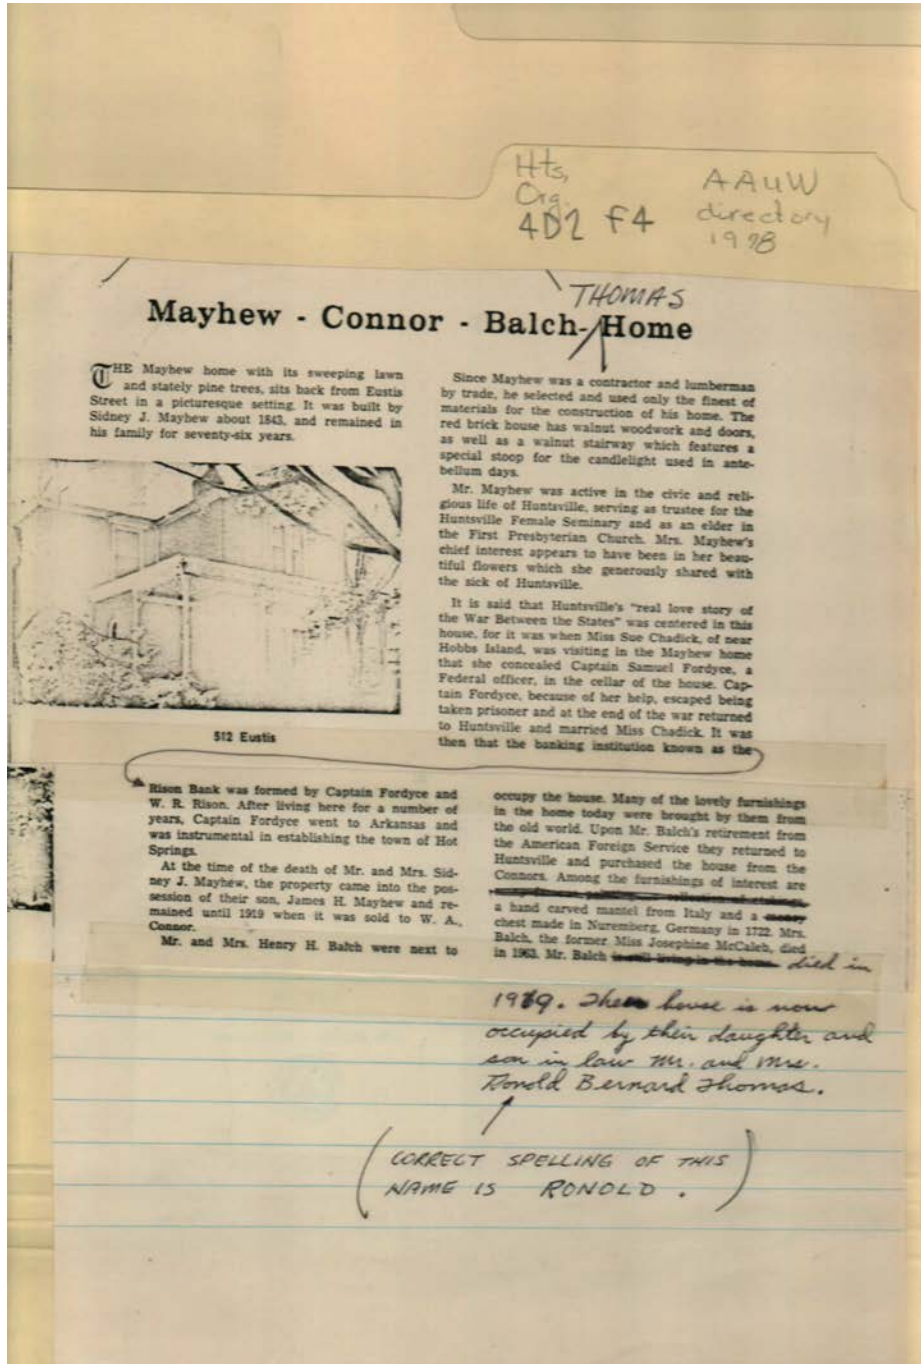 Hts,
Org.
4D2 F4
AAUW
directory
1978
THOMAS
Mayhew - Connor - Balch- Home
THE Mayhew home with its sweeping lawn
and stately pine trees, sits back from Eustis
Street in a picturesque setting. It was built by
Sidney J. Mayhew about 1843, and remained in
his family for seventy-six years.
512 Eustis
Since Mayhew was a contractor and lumberman
by trade, he selected and used only the finest of
materials for the construction of his home. The
red brick house has walnut woodwork and doors,
as well as a walnut stairway which features a
special stoop for the candlelight used in ante-
bellum days.
Mr. Mayhew was active in the civic and reli-
gious life of Huntsville, serving as trustee for the
Huntsville Female Seminary and as an elder in
the First Presbyterian Church. Mrs. Mayhew's
chief interest appears to have been in her beau-
tiful flowers which she generously shared with
the sick of Huntsville.
It is said that Huntsville's "real love story of
the War Between the States" was centered in this
house, for it was when Miss Sue Chadick, of near
Hobbs Island, was visiting in the Mayhew home
that she concealed Captain Samuel Fordyce, a
Federal officer, in the cellar of the house. Cap-
tain Fordyce, because of her help, escaped being
taken prisoner and at the end of the war returned
to Huntsville and married Miss Chadick. It was
then that the banking institution known as the
Rison Bank was formed by Captain Fordyce and
W. R. Rison. After living here for a number of
years, Captain Fordyce went to Arkansas and
was instrumental in establishing the town of Hot
Springs.
At the time of the death of Mr. and Mrs. Sid-
ney J. Mayhew, the property came into the pos-
session of their son, James H. Mayhew and re-
mained until 1919 when it was sold to W. A.,
Connor.
Mr. and Mrs. Henry H. Balch were next to
occupy the house. Many of the lovely furnishings
in the home today were brought by them from
the old world. Upon Mr. Balch's retirement from
the American Foreign Service they returned to
Huntsville and purchased the house from the
Connors. Among the furnishings of interest are
a hand carved mantel from Italy and a
chest made in Nuremberg, Germany in 1722. Mrs.
Balch, the former Miss Josephine McCaleb, died
in 1963. Mr. Balch is still living in the home. died in
house is now
occupied by their daughter and
son in law Mr. and Mrs.
Donold Bernard Thomas.
(CORRECT SPELLING OF THIS
NAME IS RONOLD.)